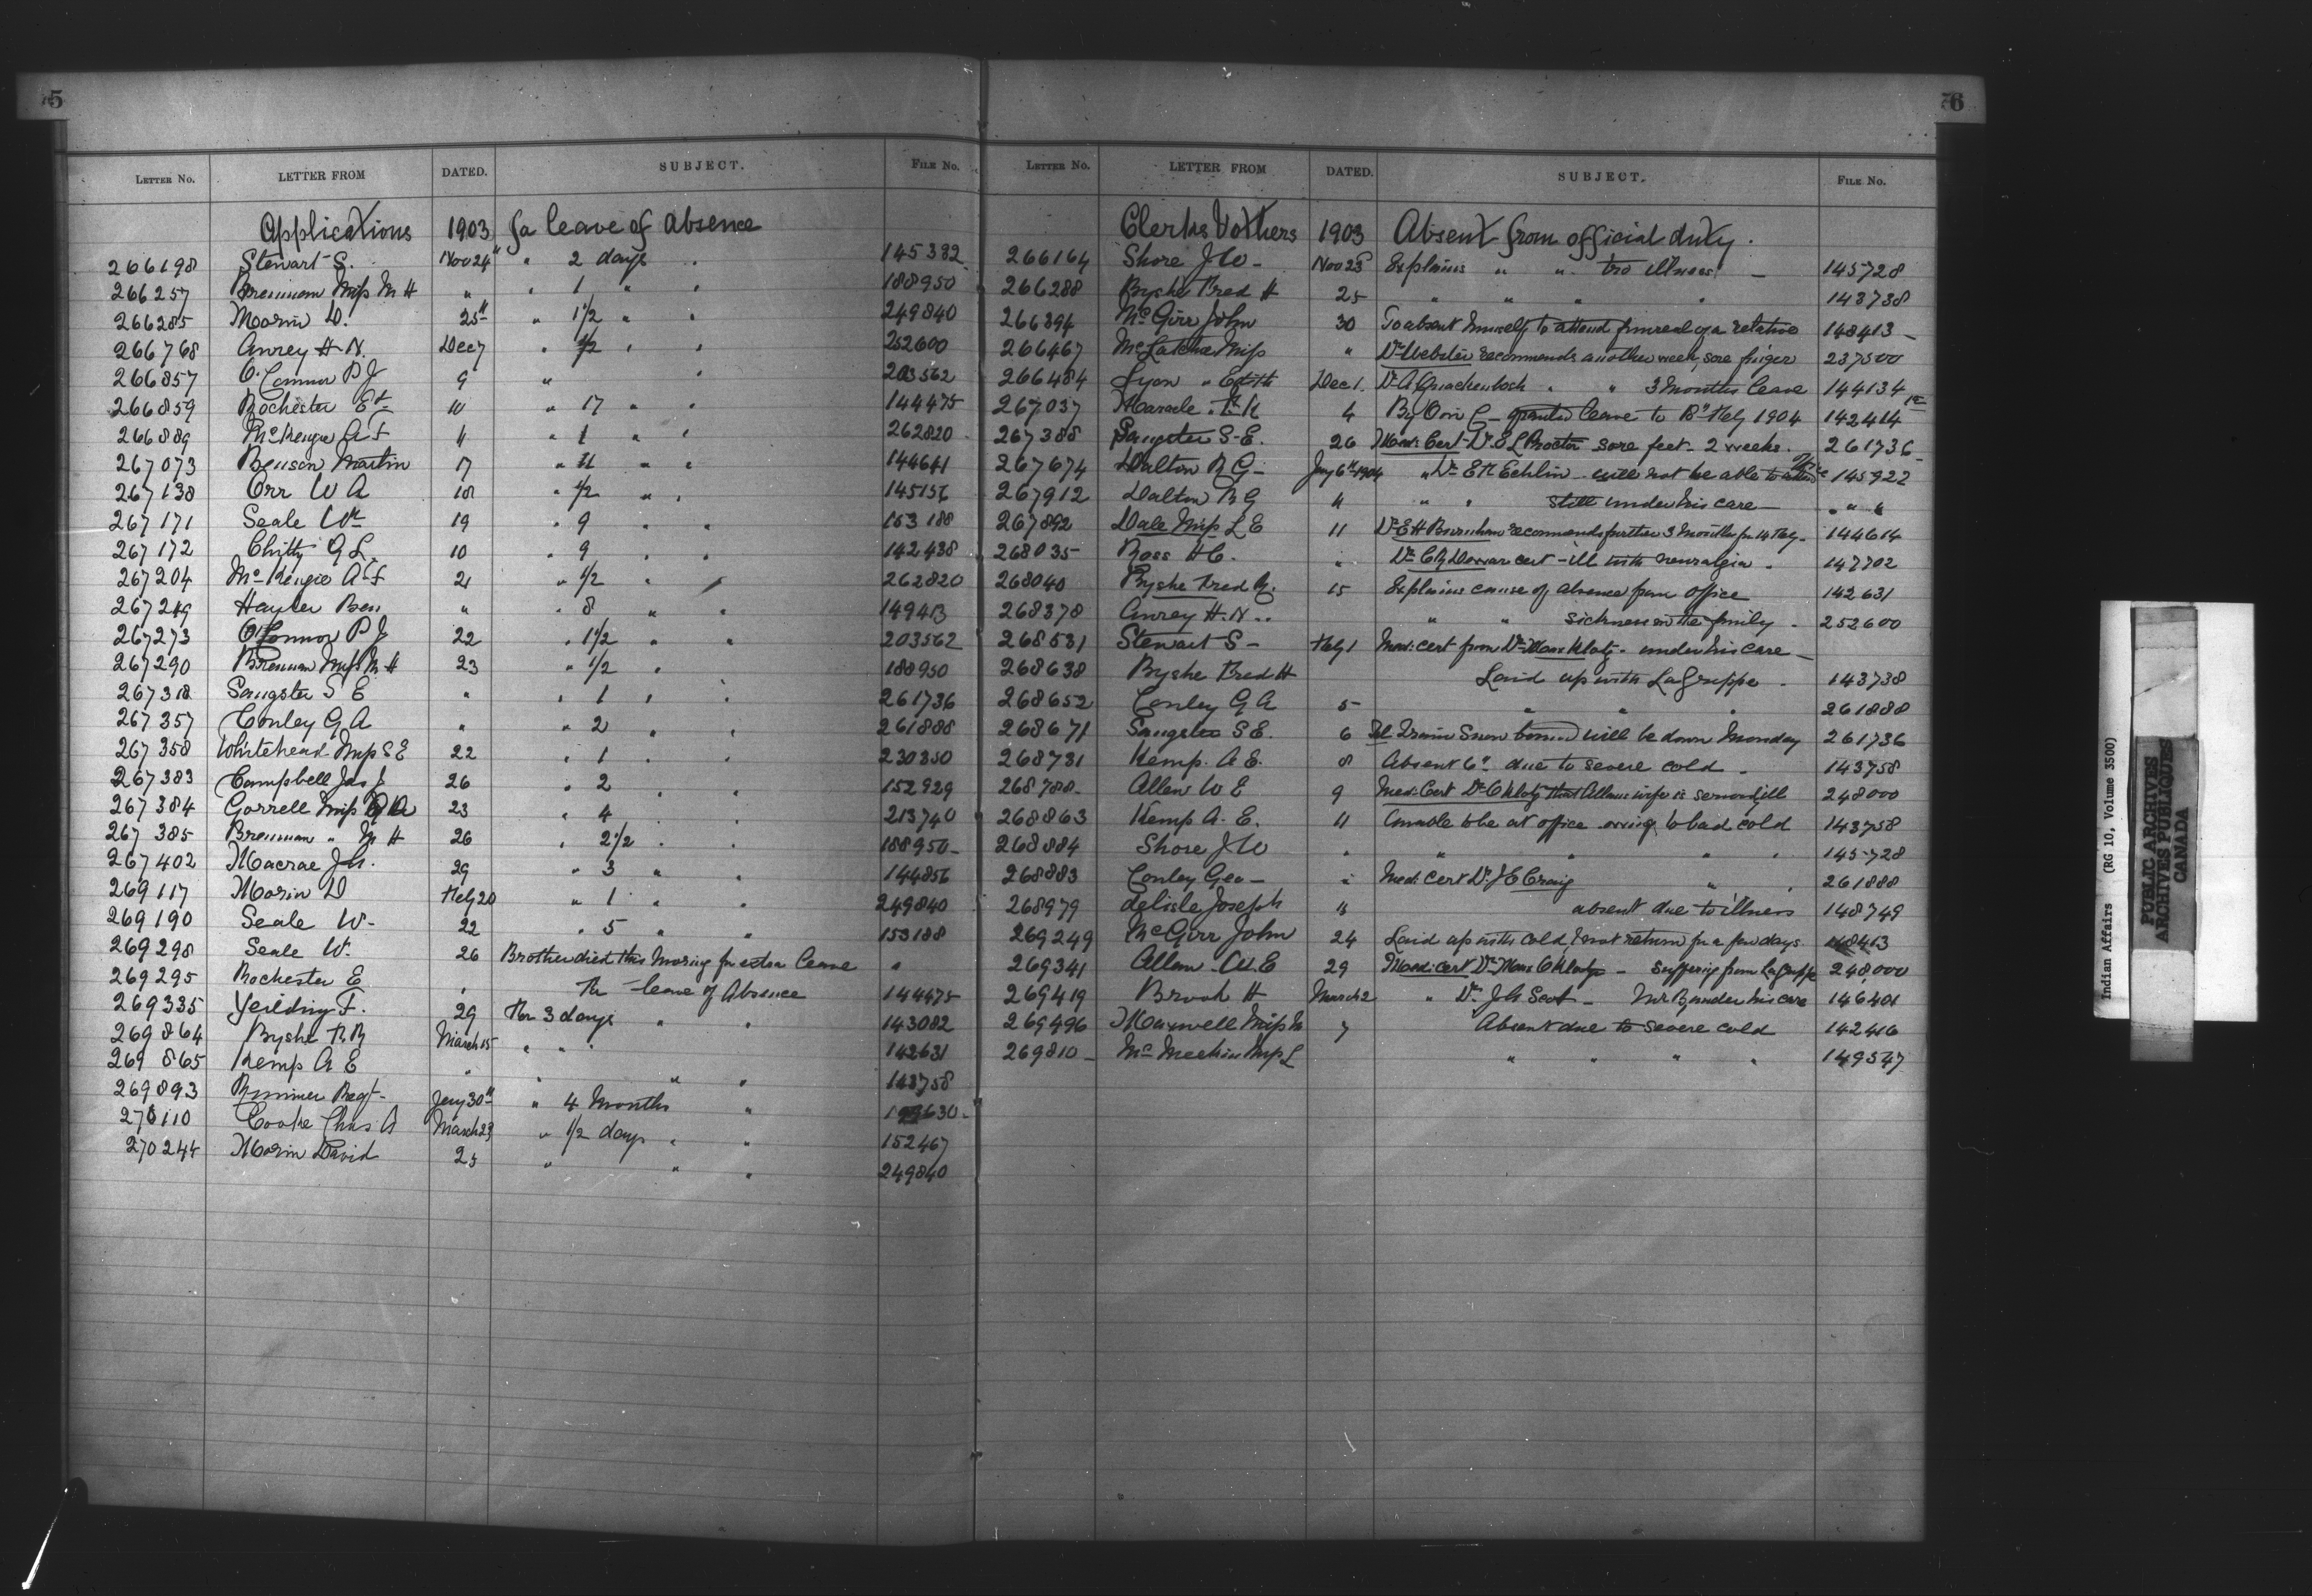 5
LETTER No. LETTER FROM DATED. SUBJECT. FILE No.
Applications 1903 for leave of absence
266198 Stewart S. Nov 24" " 2 days " 145382
266257 Brennan Miss M H " " 1 " " 188950
266285 Morin D. 25th " 1 1/2 " " 249840
266768 Awrey H. N. Dec 7 " 1/2 " " 252600
266857 O'Connor P J 9 " " 203562
266859 Rochester Et 10 " 17 " " 144475
266889 McKenzie A F 11 " 1 " " 262820
267073 Benson Martin 17 " 11 " " 144641
267138 Orr W A 18 " 1/2 " " 145156
267171 Seale Wm 19 " 9 " " 153188
267172 Chitty G L. 10 " 9 " " 142438
267204 McKenzie A F 21 " 1/2 " " 262820
267249 Hayter Ben " " 8 " " 149413
267273 O'Connor P J 22 " 1 1/2 " " 203562
267290 Brennan Miss M H 23 " 1/2 " 188950
267318 Sangster S E " " 1 " " 261736
267357 Conley G A " " 2 " " 261888
267358 Whitehead Miss S E 22 " 1 " " 230350
267383 Campbell Jas J 26 " 2 " " 152929
267384 Gorrell Miss 23 " 4 " " 213740
267385 Brennan " M H 26 " 2 1/2 " " 188950
267402 Macrae J. 29 " 3 " " 144856
269117 Morin D Feby 20 " 1 " " 249840
269190 Seale W. 22 " 5 " " 153188
269298 Seale W. 26 Brother died this morning for extra leave "
269295 Rochester E " For leave of Absence 144475
269335 Yeilding F. 29 For 3 days " " 143082
269864 Byshe F. R March 15 " " " 142631
269865 Kemp A E " " " " 143758
269893 Rimmer Regt Jany 30th " 4 Months " 630
270110 Cooke Chas A March 23 " 1/2 days " " 152467
270244 Morin David 25 " " " 249840
6
LETTER No. LETTER FROM DATED. SUBJECT. FILE No.
Clerks & others 1903 Absent from official duty.
266164 Shore J W Nov 23 Explains " " tro illness 145728
266288 Byshe Fred H 25 " " " " 143738
266394 McGirr John 30 To absent himself to attend funeral of a relative 148413
266467 McLatchie Miss " Dr Webster recommends another week, sore finger 237500
266484 Lyon " Edith Dec 1. Dr A Quackenbosh " " 3 months leave 144134
267037 Maracle 4 By O in C granted leave to Feby 1904 142414
267388 Sangster S. E. 26 Med: Cert Dr E L Proctor sore feet 2 weeks. 261736
267674 Dalton R G Jany 6th 1904 " Dr E H Echlin will not be able to attend office 145922
267912 Dalton R G 11 " " still under his care " " "
267892 Dale Miss L E 11 Dr E H Burnham recommends further 3 months fm 14 Feby 144614
268035 Ross H C. " Dr C R Dewar cert - ill with neuralgia. 147702
268040 Byshe Fred R. 15 Explains cause of absence from office 142631
268378 Awrey H. N. " " sickness in the family 252600
268531 Stewart S Feby 1 Med: cert from Dr Max Klotz under his care
268638 Byshe Fred H Laid up with LaGrippe 143738
268652 Conley G A 5 " " " 261888
268671 Sangster S E. 6 Tel. Train Snow bound will be down Monday 261736
268731 Kemp A. E. 8 Absent 6th due to severe cold 143758
268788 Allen W E 9 Med: Cert Dr O Klotz that Allans wife is seriously ill 248000
268863 Kemp A. E. 11 Unable to be at office owing to bad cold 143758
268884 Shore J W " " " " " 145728
268883 Conley Geo " Med: cert Dr J E Craig " " 261888
268979 delisle Joseph 15 absent due to illness 148749
269249 McGirr John 24 Laid up with cold & not return for a few days. 148413
269341 Allan W. E 29 Med: cert Dr Max O Klotz suffering from La Grippe 248,000
269419 Brook H March 2 " Dr Scott Mr B, under his care 146401
269496 Maxwell Miss M 7 Absent due to severe cold 142416
269810 McMeekin Miss L " " " " 149547
Indian Affairs (RG 10, Volume 3500)
PUBLIC ARCHIVES
ARCHIVES PUBLIQUES
CANADA